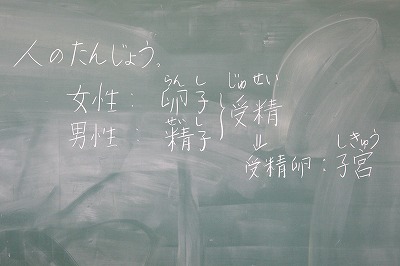 人のたんじょう。
らんし じゅせい
女性：卵子 受精
せいし
男性：精子
⇓
しきゅう
受精卵：子宮